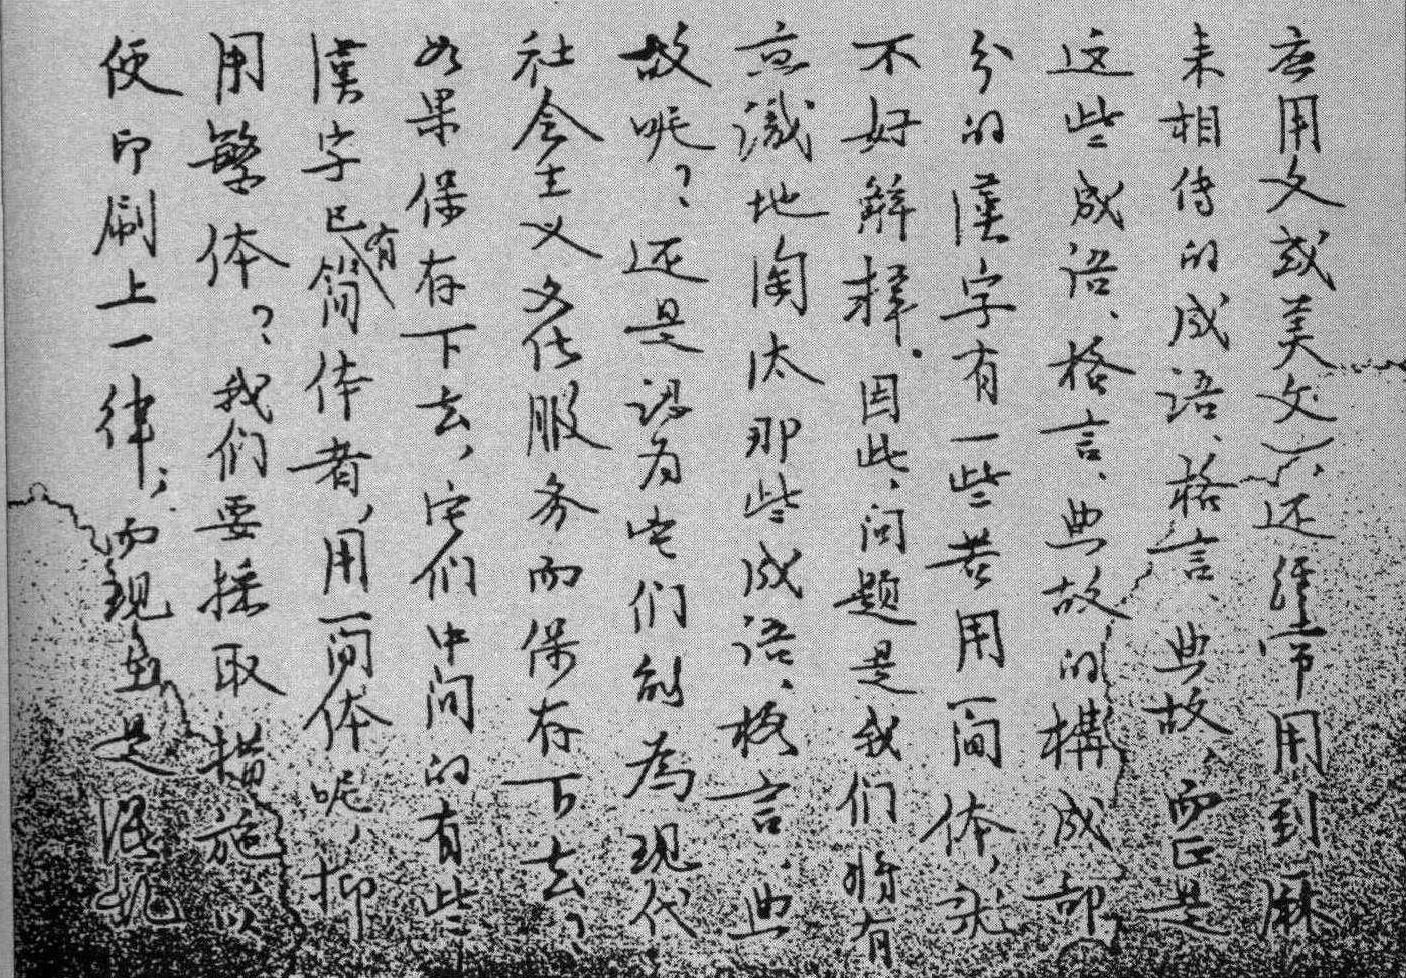 应用文或美文），还经常用到歷
来相传的成语、格言、典故，而正是
这些成语、格言、典故的構成部
分的漢字有一些若用简体，就
不好解释。因此，问题是我们将有
意識地淘汰那些成语、格言、典
故呢？还是認为它们能為现代
社会主义文化服务而保存下去？
如果保存下去，它们中间的有些
漢字已有简体者，用简体呢，抑
用繁体？我们要採取措施，以
便印刷上一律；而现在是混乱